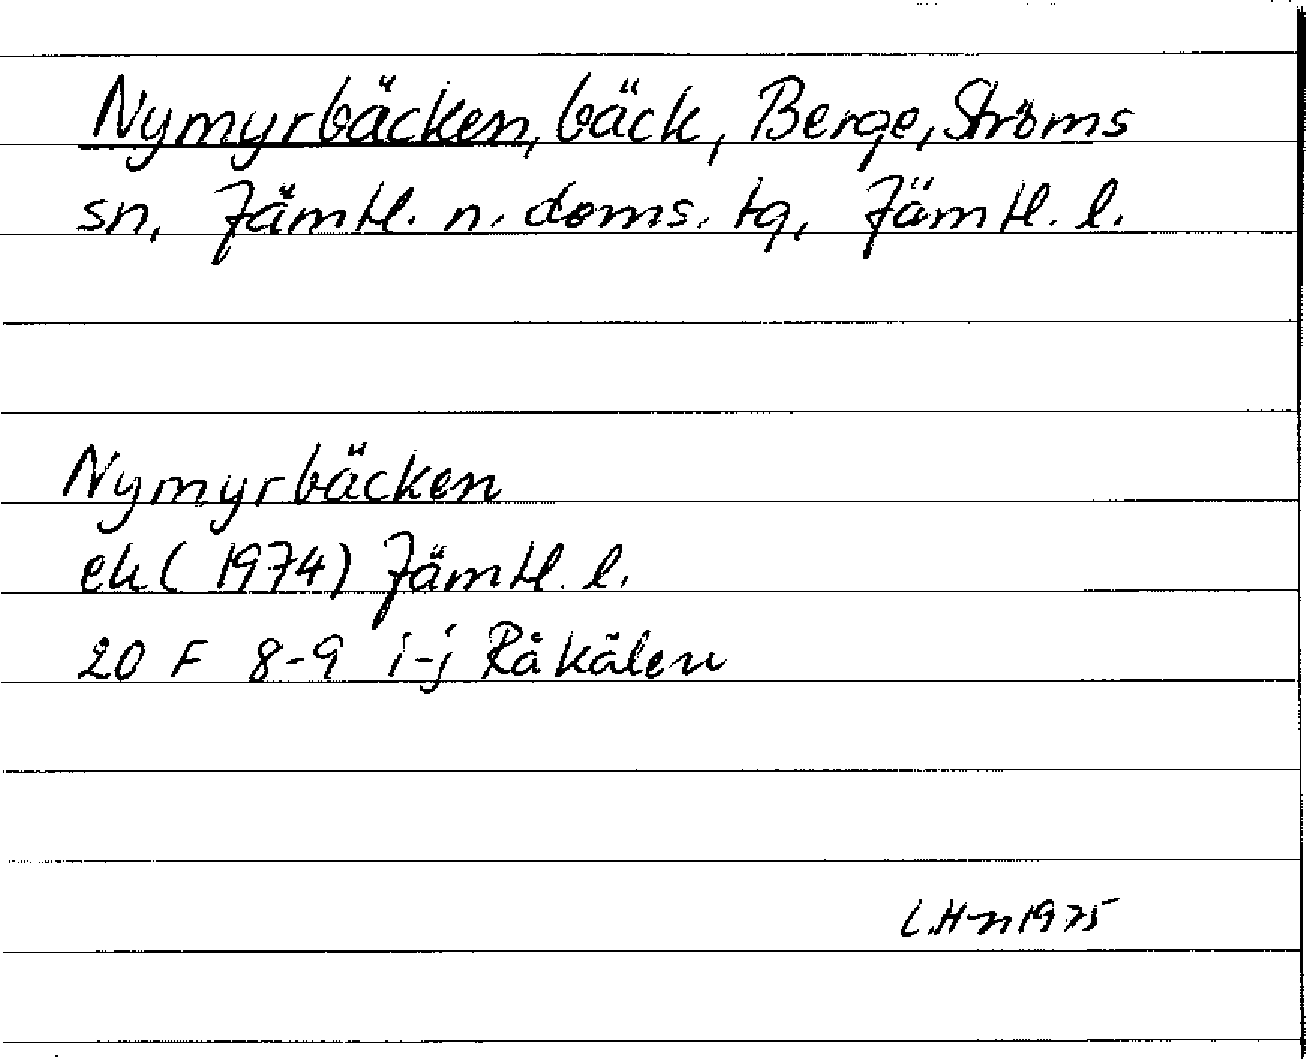 Nymyrbäcken, bäck, Berge, Ströms
sn, Jämtl. n. doms. tg, Jämtl. l.
Nymyrbäcken
ek (1974) Jämtl. l.
20 F 8-9 i-j Råkälen
L.H-n 1975